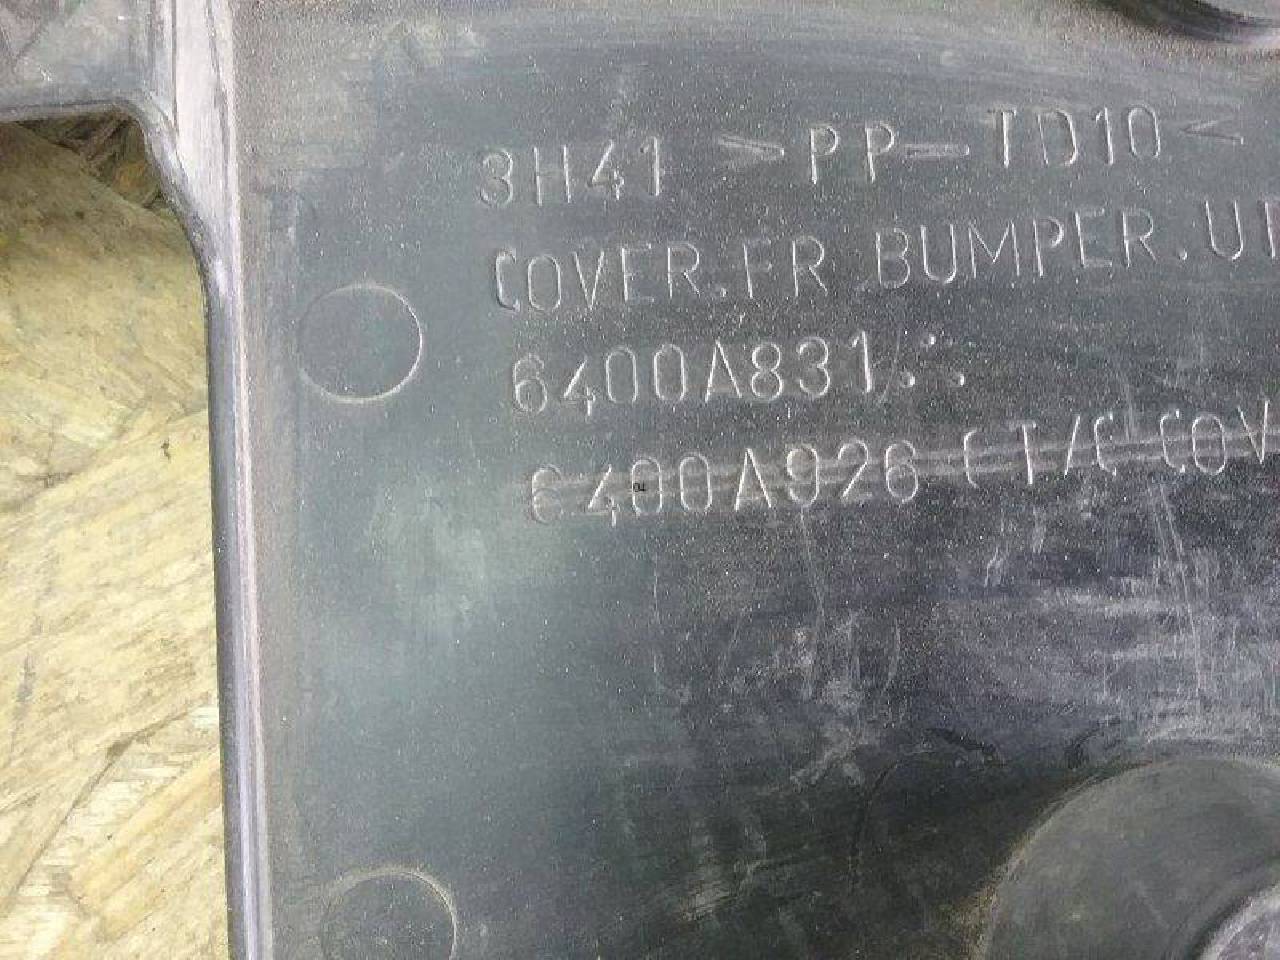 3H41 >PP-TD10<
COVER.FR BUMPER.U
6400A831
6400A926 (T/C COV